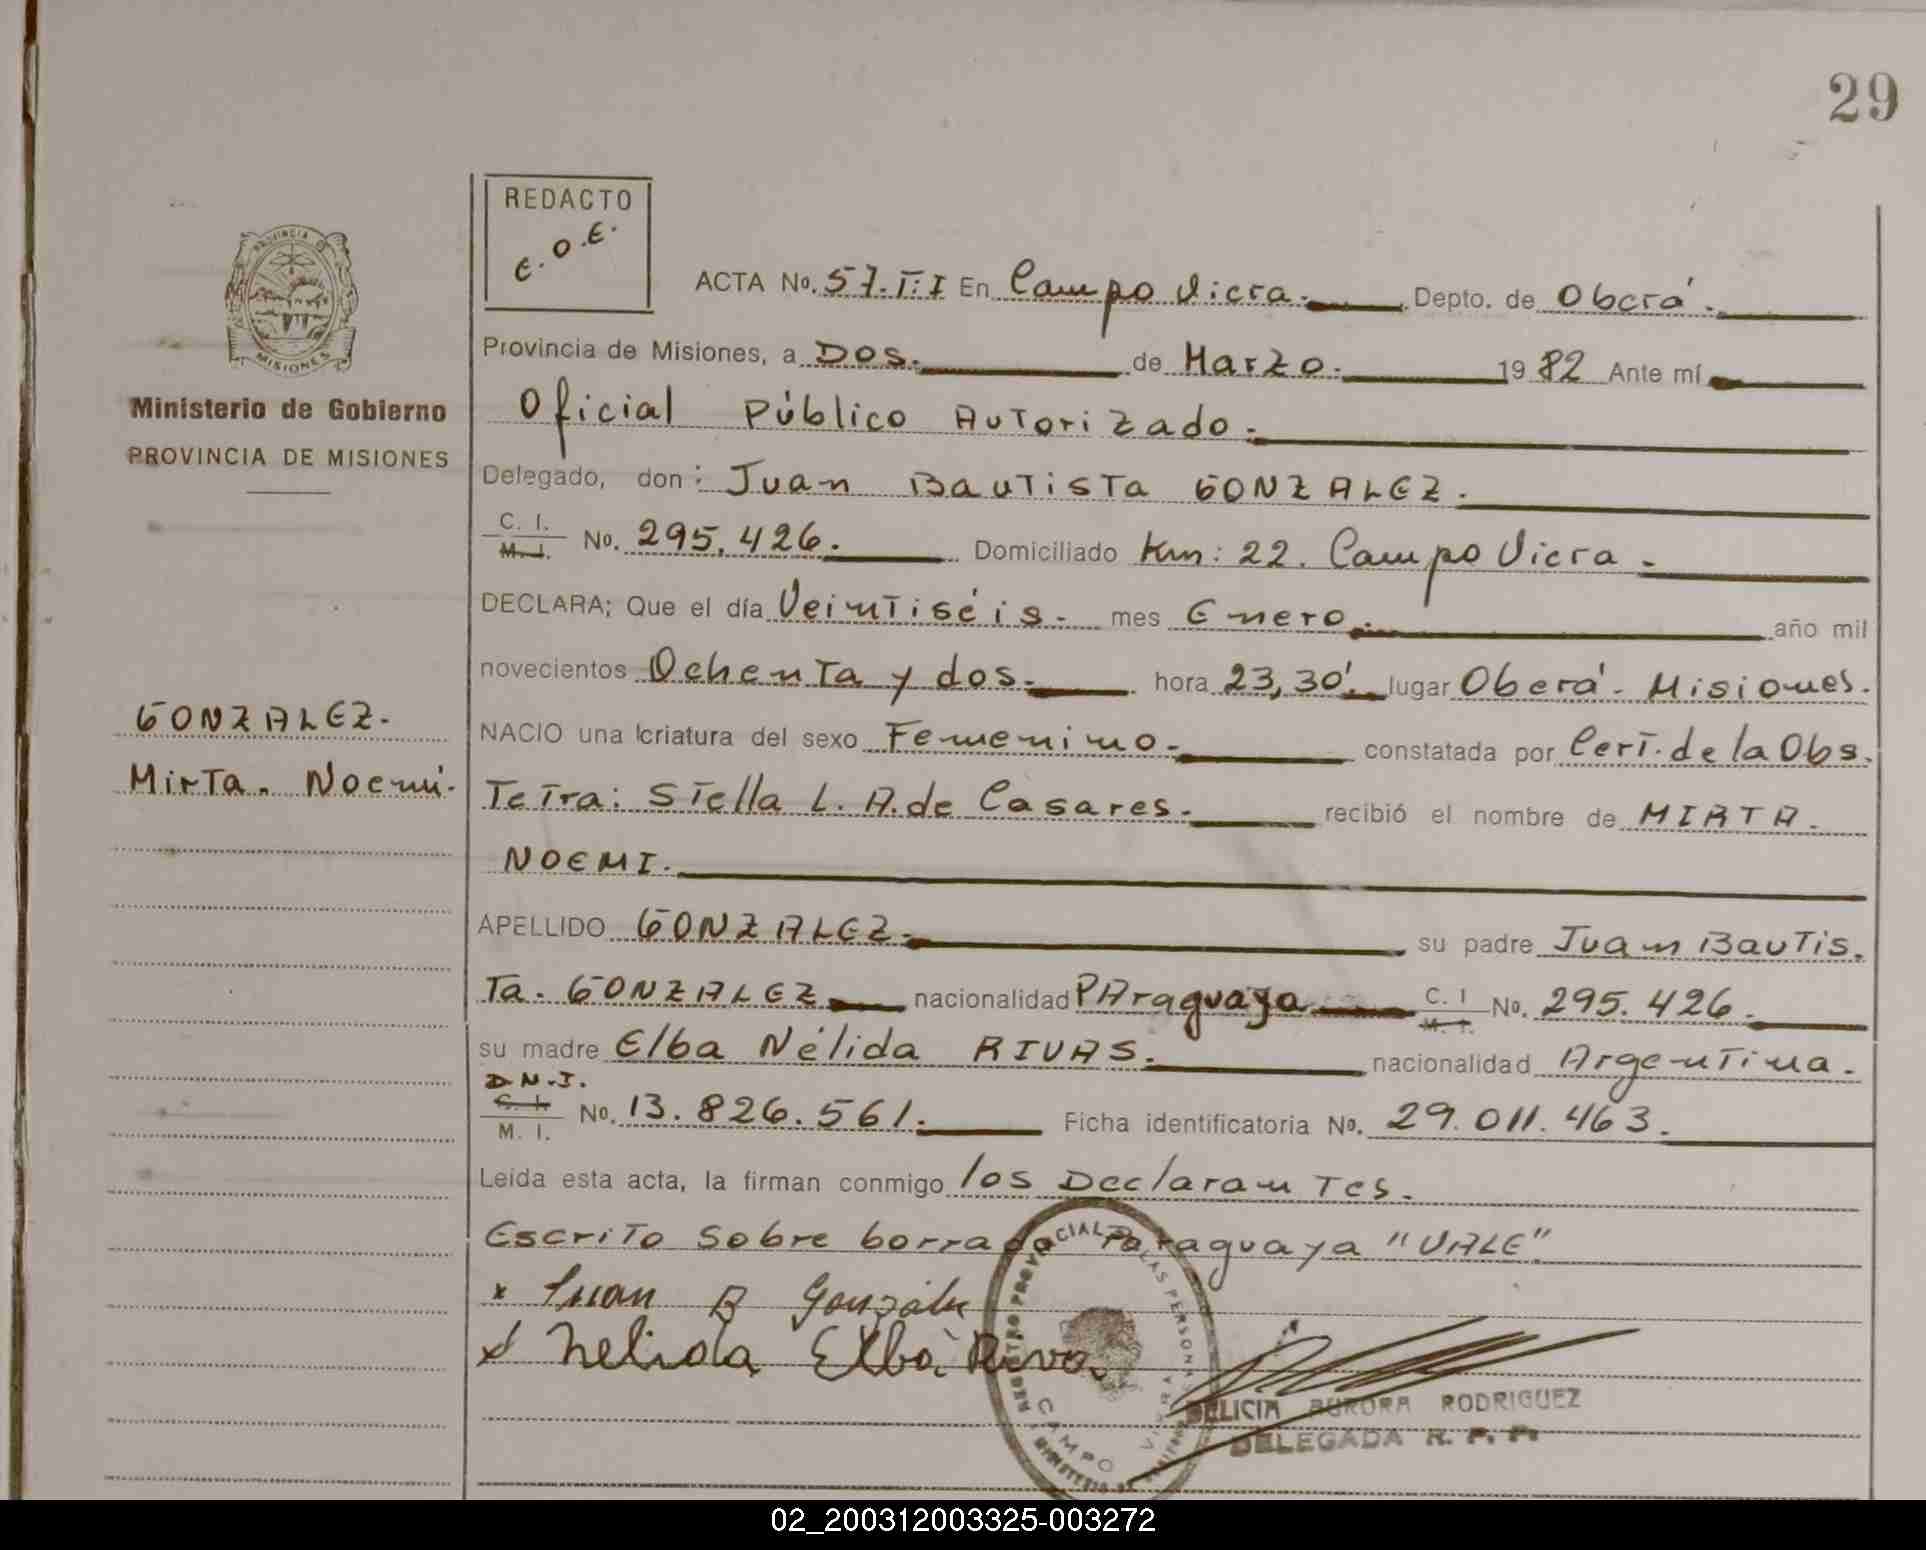 29
REDACTO
E.O.E.
PROVINCIA DE
MISIONES
Ministerio de Gobierno
PROVINCIA DE MISIONES
GONZALEZ.
Mirta. Noemí.
ACTA No. 57.T:I En Campo Viera. Depto. de Oberá.
Provincia de Misiones, a Dos. de Marzo. 1982 Ante mí
Oficial Público Autorizado.
Delegado, don: Juan Bautista GONZALEZ.
C. I. M. I. No. 295.426. Domiciliado Km: 22. Campo Viera.
DECLARA; Que el día Veintiséis. mes Enero. año mil
novecientos Ochenta y dos. hora 23,30'. lugar Oberá. Misiones.
NACIO una criatura del sexo Femenino. constatada por Cert. de la Obs.
Tetra: Stella L. A. de Casares. recibió el nombre de MIRTA.
NOEMI.
APELLIDO GONZALEZ. su padre Juan Bautis.
Ta. GONZALEZ nacionalidad PAraguaya C. I M. I. No. 295.426.
su madre Elba Nélida RIVAS. nacionalidad Argentina.
D.N.I.
C. I. M. I. No. 13.826.561. Ficha identificatoria No. 29.011.463.
Leída esta acta, la firman conmigo los Declarantes.
Escrito sobre borrado Paraguaya "VALE"
x Juan B González
x Nelida Elba Rivas
REGISTRO PROVINCIAL DE LAS PERSONAS
CAMPO VIERA
DELICIA AURORA RODRIGUEZ
DELEGADA R. P. P.
02_200312003325-003272